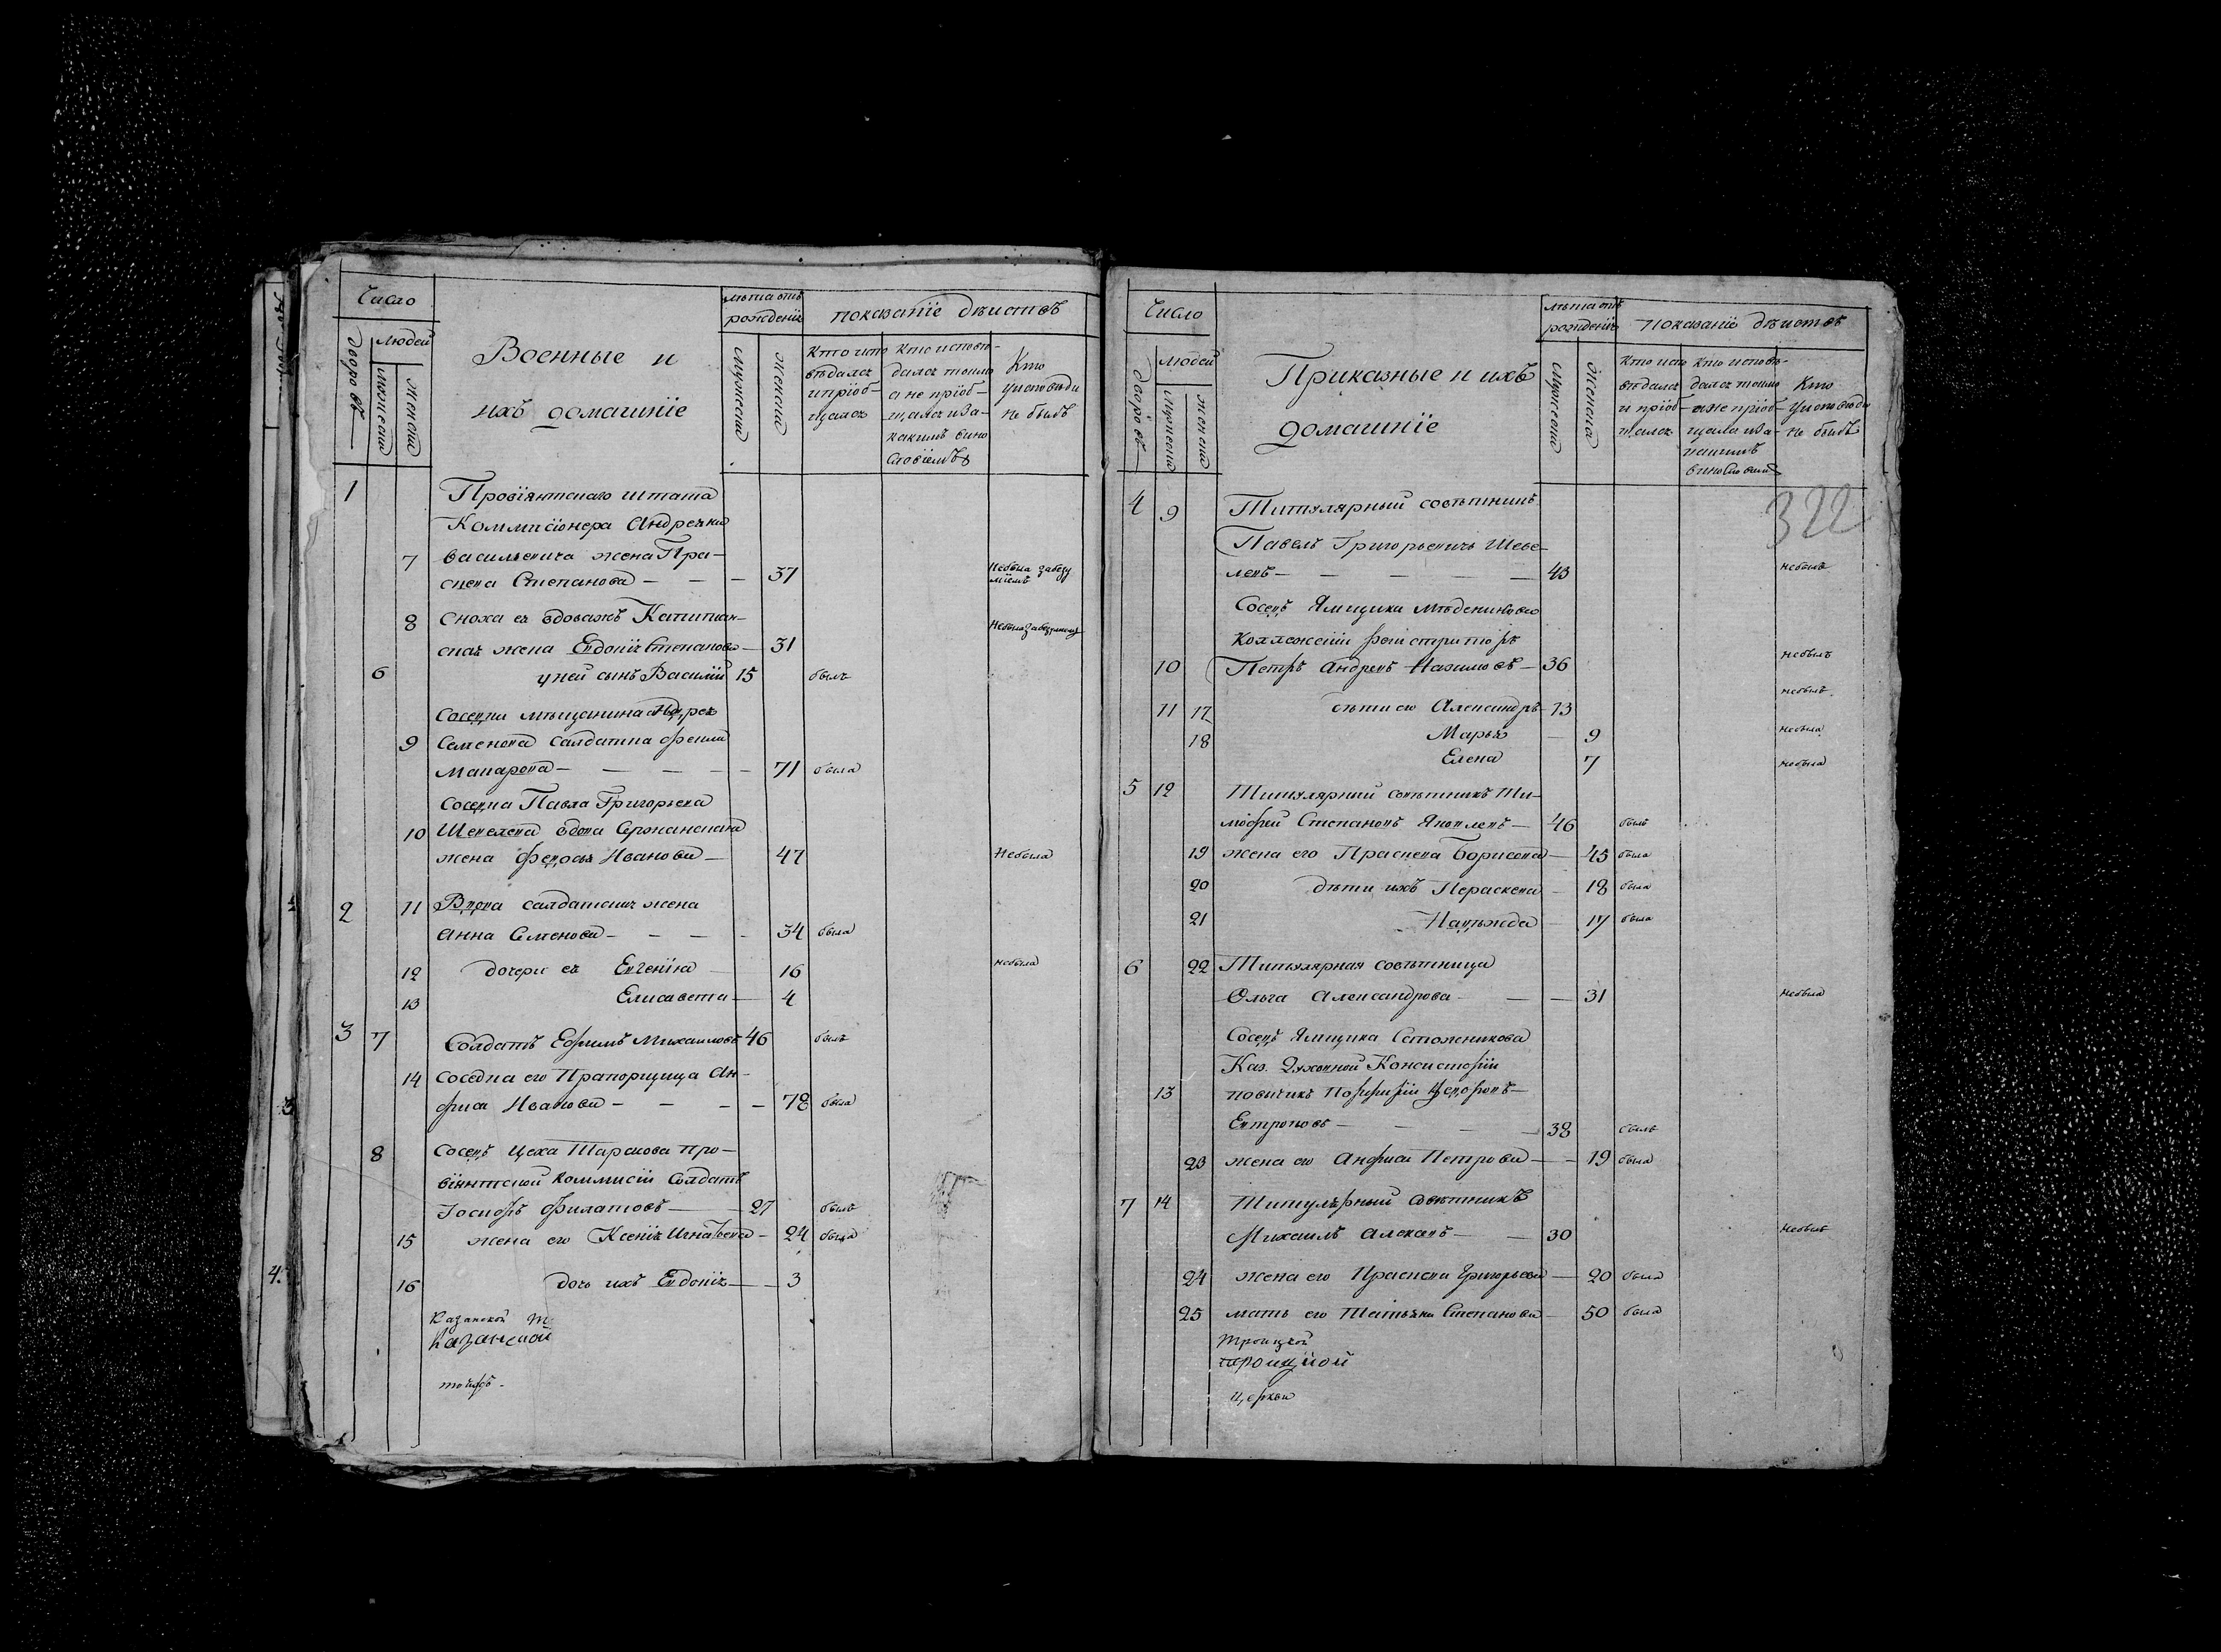 Число
Военные и
ихъ домашнiе
лѣта отъ
рожденiя
показанiе дѣйствъ
дворовъ
людей
мужеска
женска
мужеска
женска
Кто испо
вѣдался
и прiоб-
щался
Кто исповѣ-
дался токмо
а не прiоб-
щался и за-
какимъ вино
словiемъ
Кто
у исповѣди
не былъ
1
Провiянтскаго штата
Коммисiонера Андреяна
7 Васильевича жена Пра-
сковья Степанова — 37 Небыла забезу
мiемъ
8 Сноха ея вдоважъ Капитан-
ская жена Евдокiя Степанова — 31
6 у ней сынъ Василiй 15 былъ
Соседки мѣщанина Андрея
9 Семенова салдатка
Макарова — 71 была
Соседка Павла Григорьева
10 Шевелева вдова Сержанская
жена Федосья Иванова — 47 Небыла
2 11 Вдова салдатская жена
Анна Семенова — 34 была
12 дочери ея Евгенiя 16 небыла
13 Елисавета — 4
3 7 Солдатъ Ефимъ Михаиловъ 46 былъ
14 соседка его Прапорщица Ан-
фиса Иванова — 78 была
8 Соседъ цеха Тарасова про-
вiянтской Коммисiи Солдатъ
Iосифъ Филатовъ — 27 былъ
15 жена его Ксенiя Игнатьева — 24 была
16 дочь ихъ Евдокiя — 3
Казанской т
Казанской
Число
Приказные и ихъ
домашнiе
лѣта отъ
рожденiя
показанiе дѣйствъ
дворовъ
людей
мужеска
женска
мужеска
женска
Кто испо
вѣдался
и прiоб-
щался
Кто исповѣ-
дался токмо
а не прiоб-
щался и за-
какимъ
винословiем
Кто
у исповѣди
не былъ
322
4 9 Титулярный советникъ
Павелъ Григорьевичъ Шеве-
левъ — 43 небылъ
Соседъ Ямщика
Коллежскiй регистраторъ
10 Петръ Андреевъ Назимовъ — 36 небылъ
11 17 дѣти его Александръ — 13 небылъ
18 Марья — 9 небыла
Елена 7 небыла
5 12 Титулярный советникъ Ти-
мофей Степановъ Яковлевъ — 46 былъ
19 жена его Прасковья Борисова — 45 была
20 дѣти ихъ Параскева — 18 была
21 Надѣжда — 17 была
6 22 Титулярная советница
Ольга Александрова — 31 Небыла
Соседъ Ямщика Сапожникова
Каз. Духовной Консисторiи
13 повытчикъ Порфирiй
Евтроповъ — 38 былъ
23 жена его Анфиса Петрова — 19 была
7 14 Титулярный советникъ
Михаилъ — 30 Небылъ
24 жена его Прасковья Григорьева — 20 была
25 мать его Татьяна Степанова — 50 была
Троицкой
троицкой
церкви